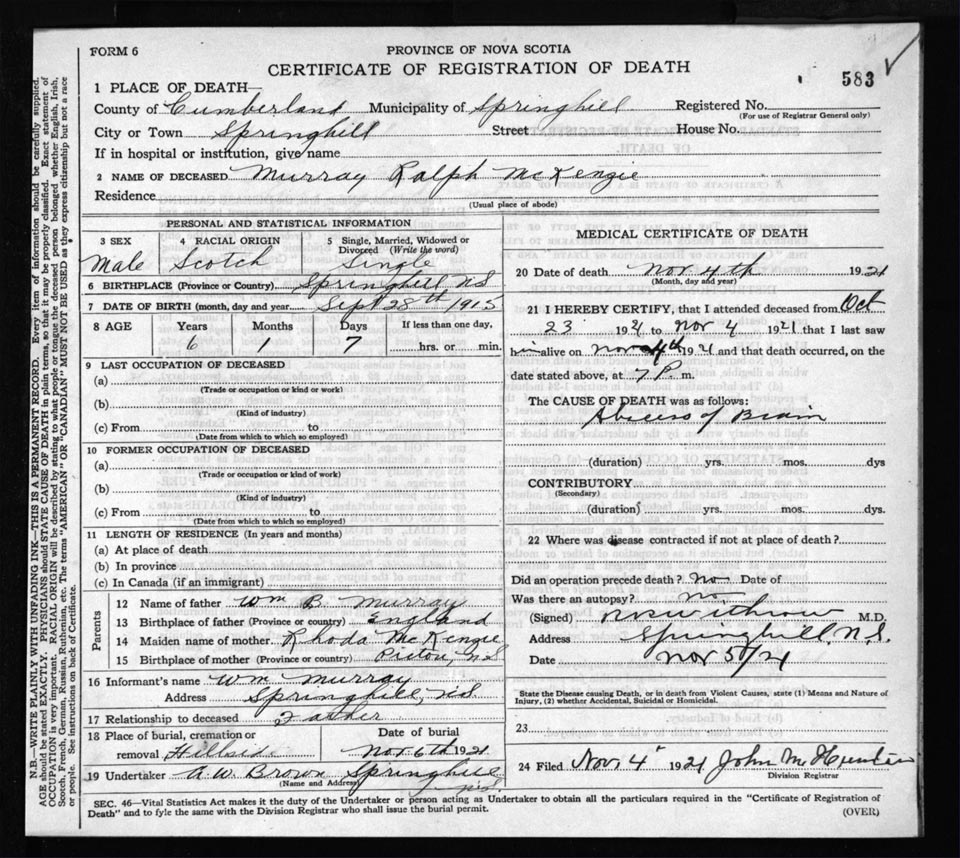 FORM 6
PROVINCE OF NOVA SCOTIA
CERTIFICATE OF REGISTRATION OF DEATH
583
1 PLACE OF DEATH
County of Cumberland Municipality of Springhill Registered No.
(For use of Registrar General only)
City or Town Springhill Street House No.
If in hospital or institution, give name
2 NAME OF DECEASED Murray Ralph McKenzie
Residence
(Usual place of abode)
PERSONAL AND STATISTICAL INFORMATION
3 SEX 4 RACIAL ORIGIN 5 Single, Married, Widowed or Divorced (Write the word)
Male Scotch Single
6 BIRTHPLACE (Province or Country) Springhill NS
7 DATE OF BIRTH (month, day and year) Sept 28th 1915
8 AGE Years Months Days If less than one day,
6 1 7 hrs. or min.
9 LAST OCCUPATION OF DECEASED
(a)
(Trade or occupation or kind or work)
(b)
(Kind of industry)
(c) From to
(Date from which to which so employed)
10 FORMER OCCUPATION OF DECEASED
(a)
(Trade or occupation or kind of work)
(b)
(Kind of industry)
(c) From to
(Date from which to which so employed)
11 LENGTH OF RESIDENCE (In years and months)
(a) At place of death
(b) In province
(c) In Canada (if an immigrant)
Parents
12 Name of father Wm B. Murray
13 Birthplace of father (Province or country) England
14 Maiden name of mother Rhoda McKenzie
15 Birthplace of mother (Province or country) Pictou, NS
16 Informant's name Wm Murray
Address Springhill, NS
17 Relationship to deceased Father
18 Place of burial, cremation or removal Hillside
Date of burial Nov 6th 1921
19 Undertaker A.W. Brown Springhill
(Name and Address) N.S.
MEDICAL CERTIFICATE OF DEATH
20 Date of death Nov 4th 1921
(Month, day and year)
21 I HEREBY CERTIFY, that I attended deceased from Oct
23 1921 to Nov 4 1921 that I last saw
him alive on Nov 4th 1921 and that death occurred, on the
date stated above, at 7 P. m.
The CAUSE OF DEATH was as follows:
Abscess of Brain
(duration) yrs. mos. dys
CONTRIBUTORY
(Secondary)
(duration) yrs. mos. dys.
22 Where was disease contracted if not at place of death?
Did an operation precede death? no Date of
Was there an autopsy? no
(Signed) Withrow M.D.
Address Springhill, N.S.
Date Nov 5/21
State the Disease causing Death, or in death from Violent Causes, state (1) Means and Nature of
Injury, (2) whether Accidental, Suicidal or Homicidal.
23
24 Filed Nov 4 1921 John M Hunter
Division Registrar
SEC. 46—Vital Statistics Act makes it the duty of the Undertaker or person acting as Undertaker to obtain all the particulars required in the "Certificate of Registration of
Death" and to fyle the same with the Division Registrar who shall issue the burial permit.
(OVER)
N.B.—WRITE PLAINLY WITH UNFADING INK—THIS IS A PERMANENT RECORD. Every item of information should be carefully supplied.
AGE should be stated EXACTLY. PHYSICIANS should STATE CAUSE OF DEATH in plain terms, so that it may be properly classified. Exact statement of
OCCUPATION is very important. RACIAL ORIGIN will be described by stating to what people or tongue the deceased person belonged whether English, Irish,
Scotch, French, German, Russian, Ruthenian, etc. The terms "AMERICAN" OR "CANADIAN" MUST NOT BE USED as they express citizenship but not a race
or people. See instructions on back of Certificate.